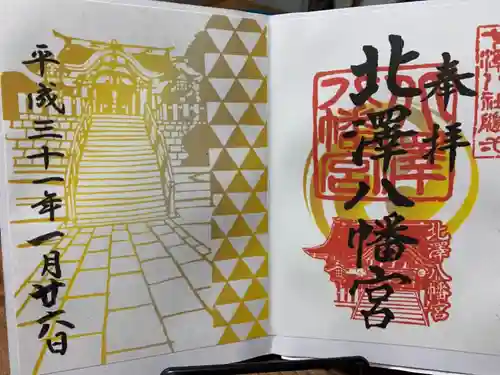 奉拝
北澤八幡宮
北澤八幡宮
北澤八幡宮
平成三十一年一月廿六日